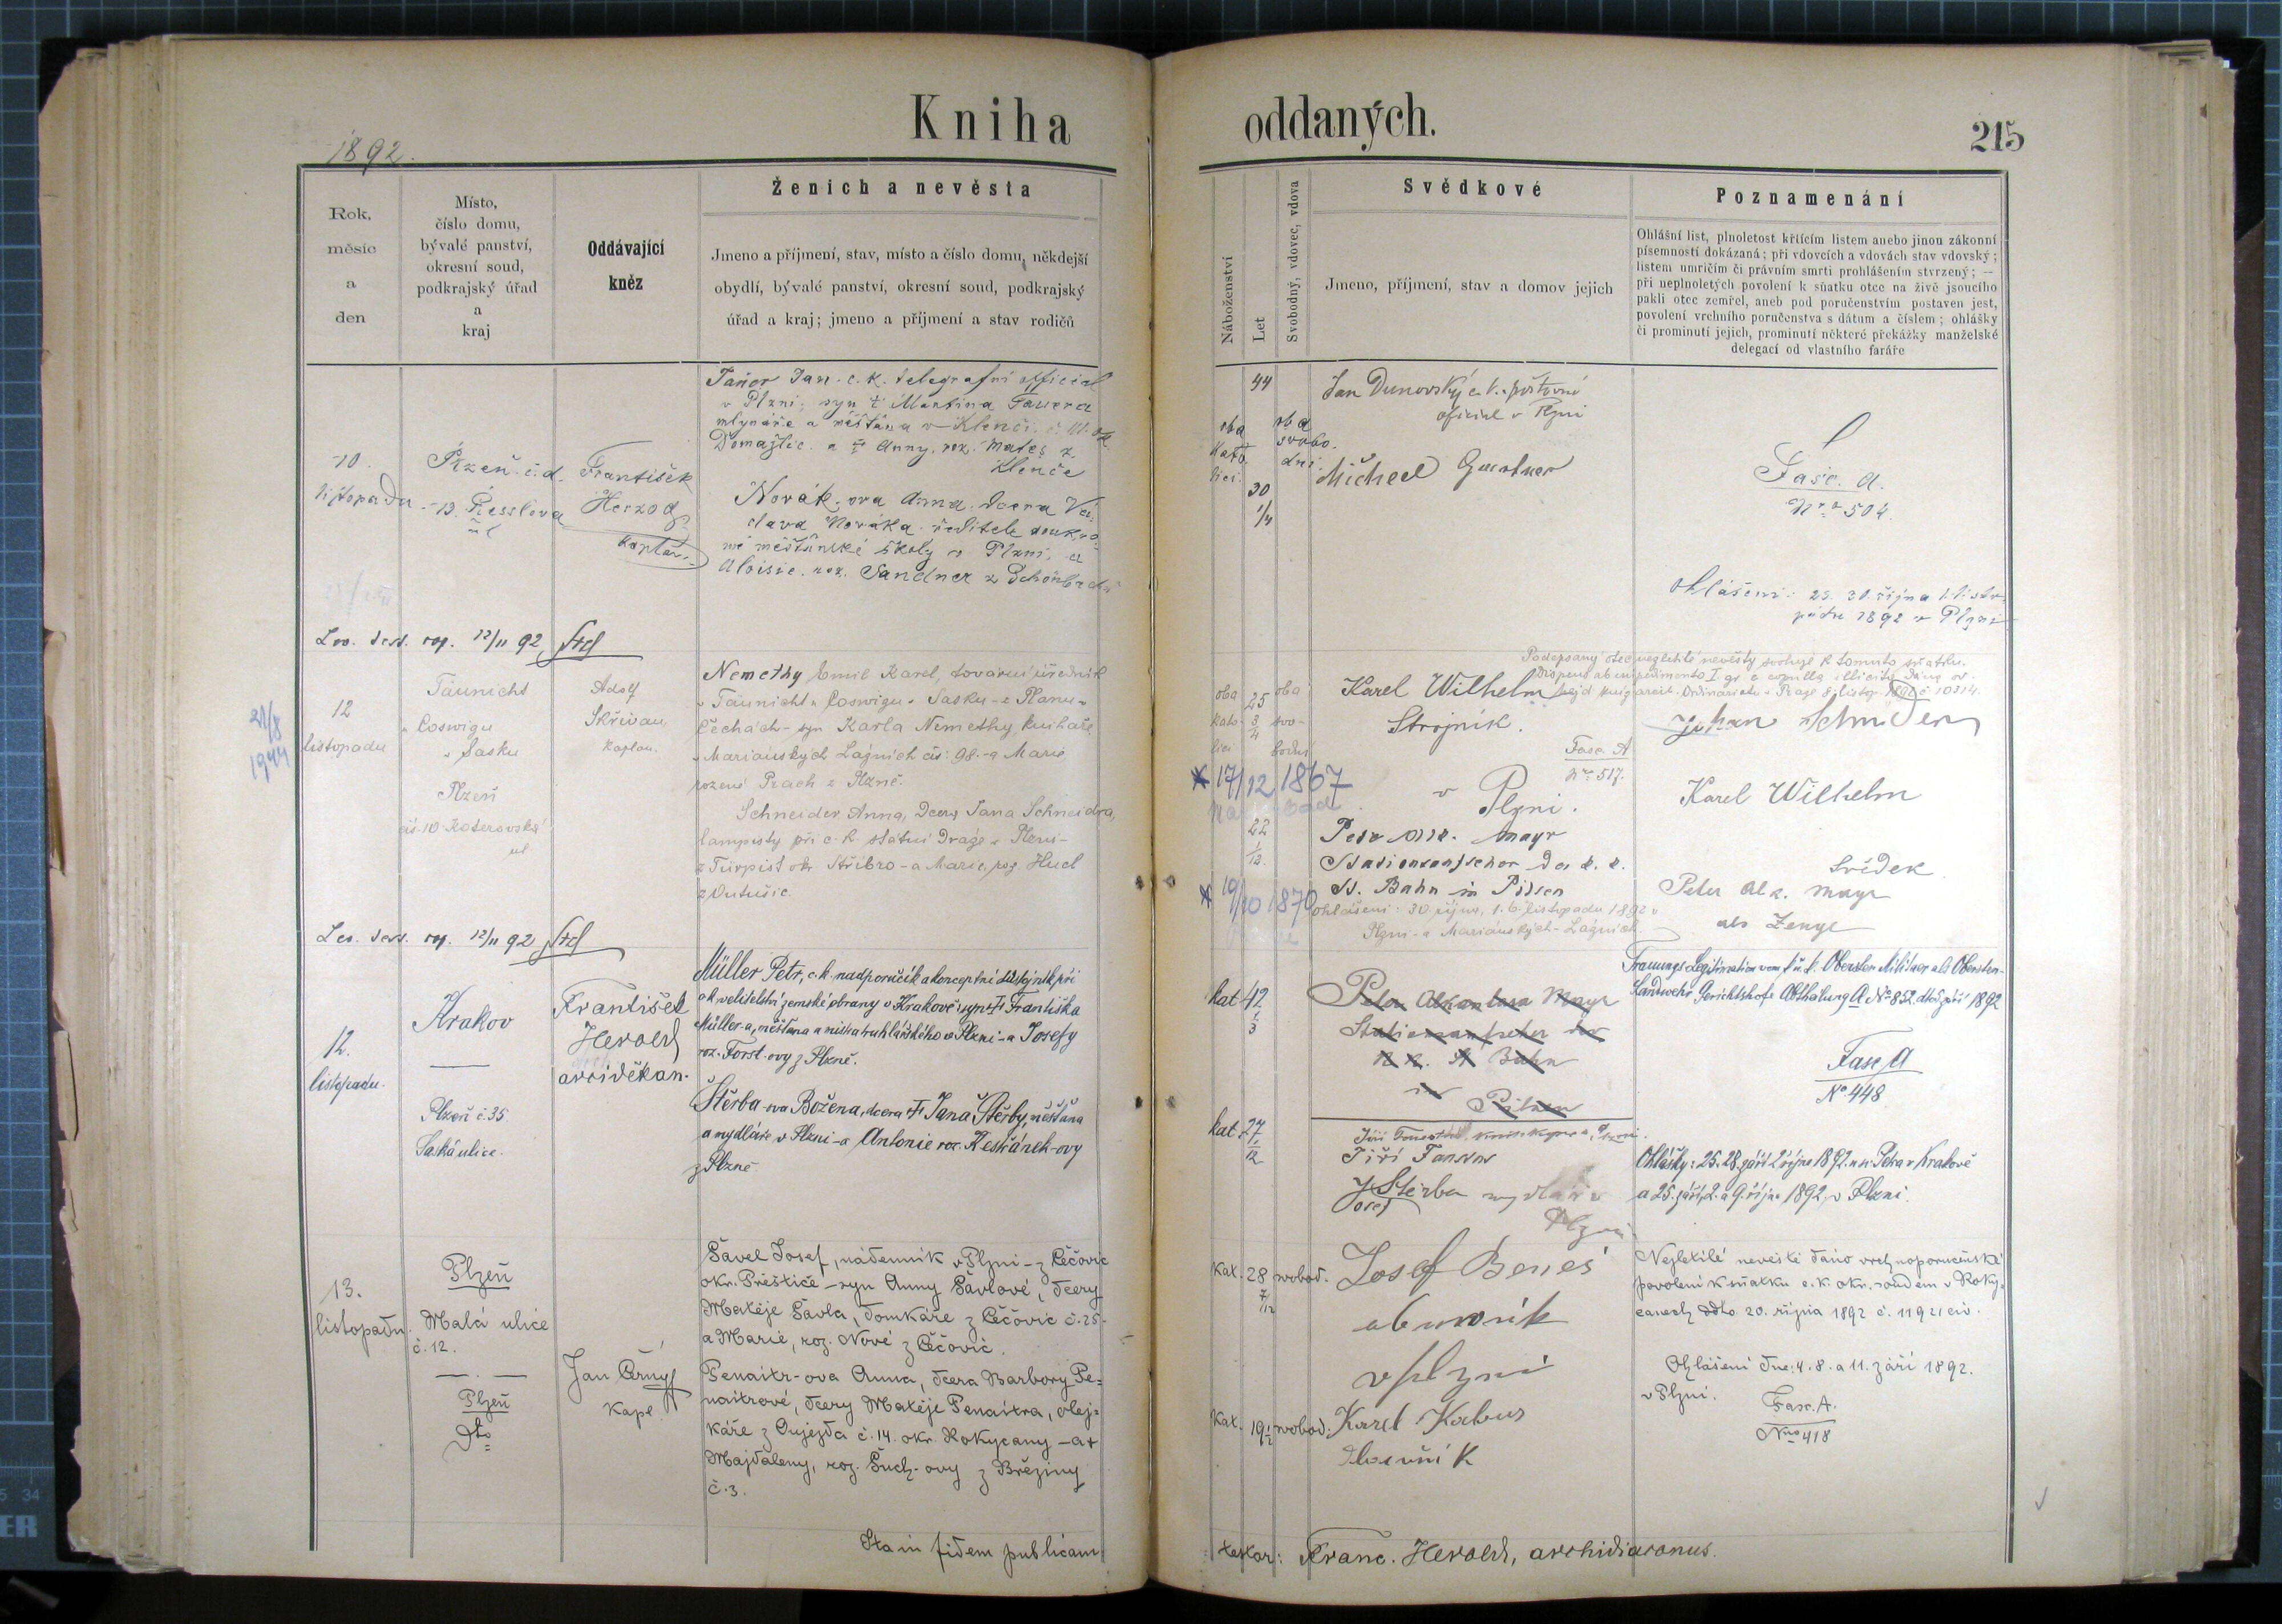 Kniha oddaných.
1892.
215
Rok,
měsíc
a
den
Místo,
číslo domu,
bývalé panství,
okresní soud,
podkrajský úřad
a
kraj
Oddávající
kněz
Ženich a nevěsta
Jmeno a příjmení, stav, místo a číslo domu, někdejší
obydlí, bývalé panství, okresní soud, podkrajský
úřad a kraj; jmeno a příjmení a stav rodičů
Náboženství
Let
Svobodný, vdovec, vdova
Svědkové
Jmeno, příjmení, stav a domov jejich
Poznamenání
Ohlášní list, plnoletost křticím listem anebo jinou zákonní
písemností dokázaná; při vdovcích a vdovách stav vdovský;
listem umričím či právním smrti prohlášením stvrzený; —
při neplnoletých povolení k sňatku otce na živě jsoucího
pakli otec zemřel, aneb pod poručenstvím postaven jest,
povolení vrchního poručenstva s dátum a číslem; ohlášky
či prominutí jejich, prominutí některé překážky manželské
delegací od vlastního faráře
10.
listopadu
Plzeň č. d.
František
Herzog
kaplan
Jan c. k. telegrafní official
v Plzni, syn † Martina
mlynáře a měštana v Klenči
Domažlic a † Anny, roz. Mateš z
Klenče
Novák-ova Anna, dcera Vá-
clava Nováka ředitele soukro-
mé měštanské školy v Plzni, a
Aloisie roz. Sandner z
44
30
1/4
oba
kato-
lici.
oba
svobo-
dni.
Jan Dunovský c. k. poštovní
oficial v Plzni
Michael
Fasc. A.
Nro 504.
Ohlášení: 23. 30. října 1. listo-
padu 1892 v Plzni
12/11 92
12
listopadu
21/8
1944
Täunicht
v Coswigu
v Sasku
Plzeň
čís. 10 Koterovská
ul
Adolf
Skřivan
kaplan.
Nemethy Emil Karel, tovární úředník
v Täunicht v Coswigu v Sasku - z Planu v
Čechách - syn Karla Nemethy, kuchaře
v Mariánských Lázních čís: 98. - a Marie
rozené Prach z Plzně.
Schneider Anna, dcera Jana Schneidra,
lampisty při c. k. státní dráze v Plzni -
okr. Stříbro - a Marie, roz. Hucl
oba
kato-
lici
25
3/4
oba
svo-
bodni
* 17/12 1867
22
1/12
* 19/10 1870
Podepsaný otec nezletilé nevěsty svoluje k tomuto sňatku.
Karel Wilhelm
Strojník.
v Plzni.
Fasc. A
Nro 517.
Johan Schneider
Karel Wilhelm
Svědek
Peter Alk. Mayr
als Zeuge
Peter Alk. Mayr
der k. k.
St. Bahn in Pilsen
Ohlášení: 30. října, 1. 6. listopadu 1892 v
Plzni - a Mariánských-Lázních.
12/11 92
12.
listopadu.
Krakov
Plzeň č. 35.
Saská ulice.
František
Herold
arciděkan.
Müller Petr, c. k. nadporučík a konceptní důstojník při
c. k. velitelství zemské obrany v Krakově, syn † Františka
Müller-a, měštana a mistra truhlářského v Plzni - a Josefy
roz. Forst-ovy z Plzně.
Štěrba-ova Božena, dcera † Jana Štěrby, měšťana
a mydláře v Plzni - a Antonie roz. Kestřánek-ovy
z Plzně
kat.
42
1/3
kat.
27
1/12
Peter Alcantara Mayr
k. k. St Bahn
in Pilsen
Jiří
Josef Štěrba mydlář v
Plzni
Trauungs Legitimation vom k. k. Obersten Militär als Obersten-
Landwehr Gerichtshofe Abtheilung A No 852. dto září 1892
Fasc A
No 448
Ohlášky: 25. 28. září 2 října 1892. u sv. Petra v Krakově
a 25. září, 2. a 9. října 1892, v Plzni.
13.
listopadu.
Plzeň
Malá ulice
č. 12.
Plzeň
dto
Jan Černý
Kapl.
Šavel Josef, nádenník v Plzni - z Čečovic
okr. Přeštice - syn Anny Šavlové, dcery
Matěje Šavla, domkáře z Čečovic č. 25 -
a Marie, roz. Nové z Čečovic.
Penaitr-ova Anna, dcera Barbory Pe-
naitrové, dcery Matěje Penaitra, olej-
káře z Oujezda č. 14. okr. Rokycany - a †
Majdaleny, roz. Šuch-ovy z Březiny
č. 3.
kat.
28
7/12
svobod.
kat.
19 1/2
svobod.
Josef Beneš
obuvník
v Plzni
Karel Kabus
Nezletilé nevěstě dáno vrchnoporučenské
povolení k sňatku c. k. okr. soudem v Roky-
canech ddto. 20. října 1892 č. 11921 civ.
Ohlášení dne: 4. 8. a 11. září 1892.
v Plzni.
Fasc. A.
Nro 418
Ita in fidem publicam
testor: Franc. Herold, archidiaconus.